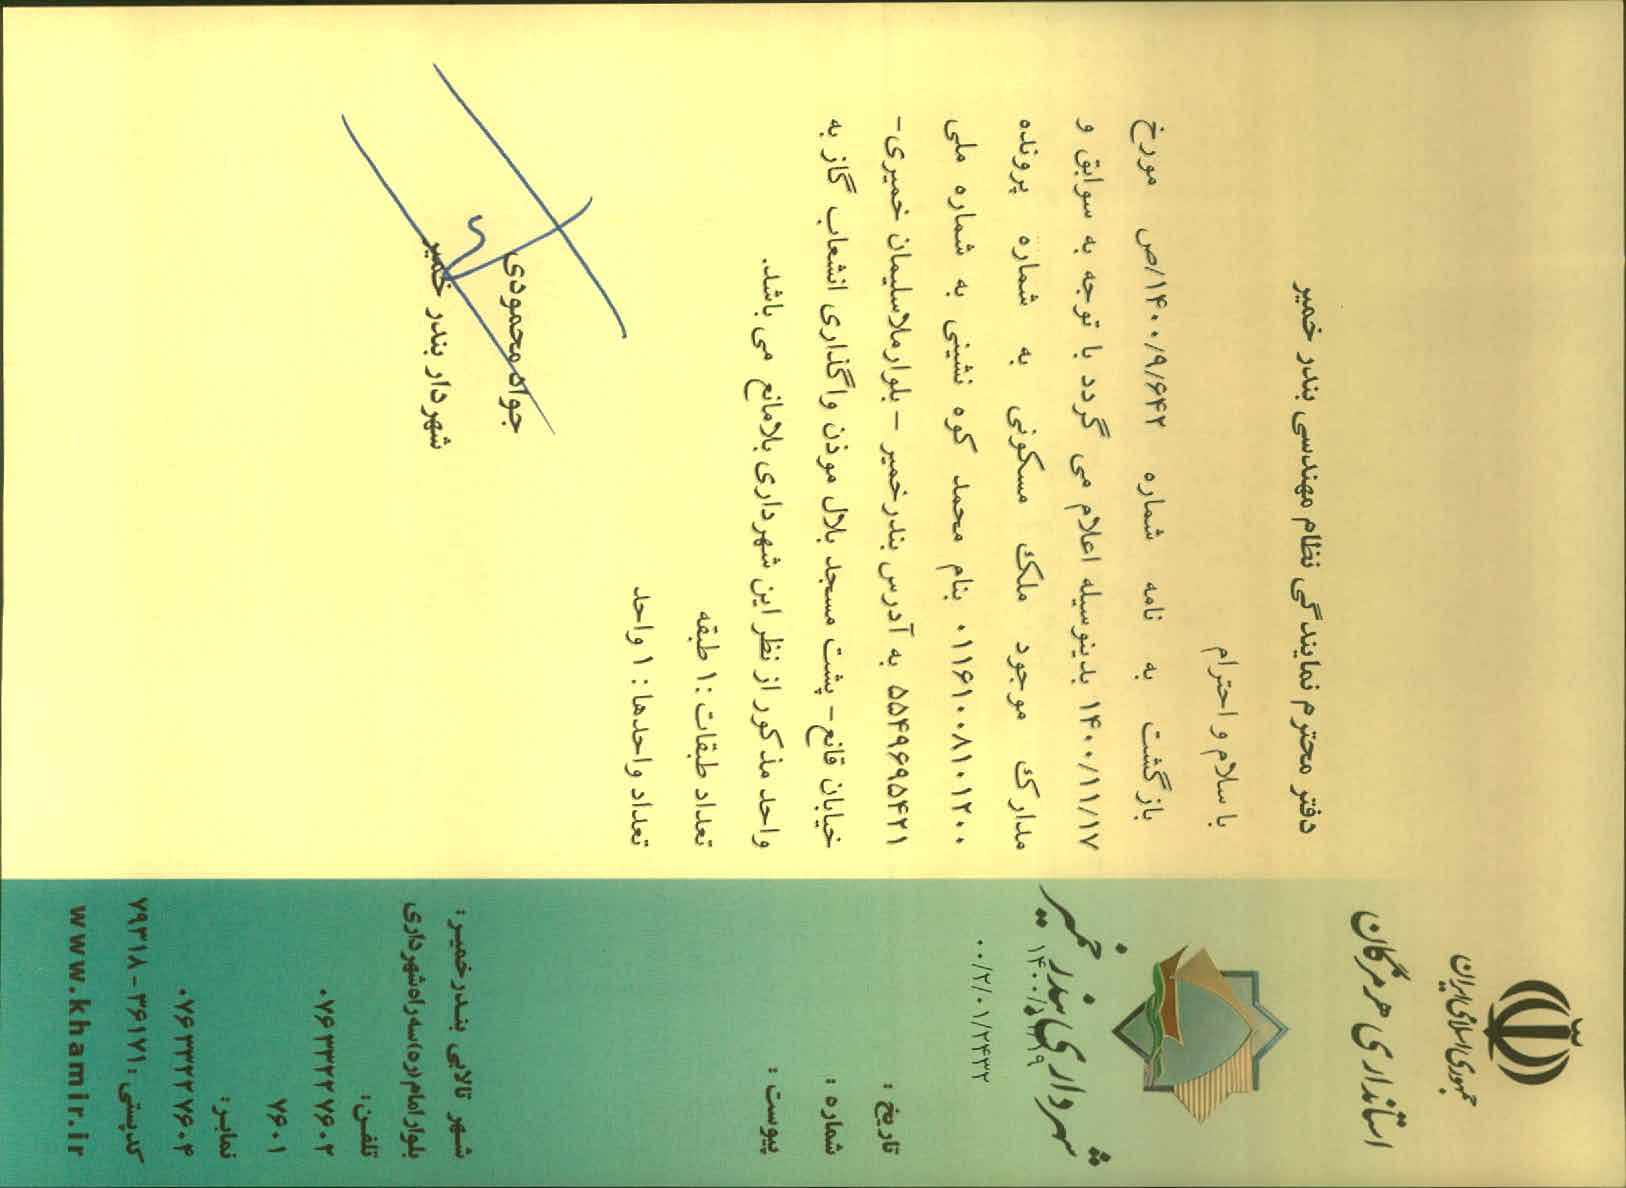 جمهوری اسلامی ایران
استانداری هرمزگان
شهرداری بندر خمیر
۰۰/۲/۰۱/۲۴۳۲
تاریخ :
شماره :
پیوست :
دفتر محترم نمایندگی نظام مهندسی بندر خمیر
با سلام و احترام
بازگشت به نامه شماره ۱۴۰۰/۹/۶۴۲/ص مورخ
۱۴۰۰/۱۱/۱۷ بدینوسیله اعلام می گردد با توجه به سوابق و
مدارک موجود ملک مسکونی به شماره پرونده
۰۱۱۶۱۰۰۸۱۰۱۲۰۰ بنام محمد کوه نشینی به شماره ملی
۵۵۴۹۶۹۵۴۲۱ به آدرس بندرخمیر – بلوارملاسلیمان خمیری-
خیابان قانع- پشت مسجد بلال موذن واگذاری انشعاب گاز به
واحد مذکور از نظر این شهرداری بلامانع می باشد.
تعداد طبقات :۱ طبقه
تعداد واحدها : ۱ واحد
جواد محمودی
شهردار بندر خمیر
شهر تالابی بندرخمیر:
بلوار امام(ره)سه راه شهرداری
تلفن:
۰۷۶۳۳۲۲۷۶۰۲
۷۶۰۱
نمابر:
۰۷۶۳۳۲۲۷۶۰۴
کدپستی : ۳۶۱۷۱ - ۷۹۳۱۸
www.khamir.ir